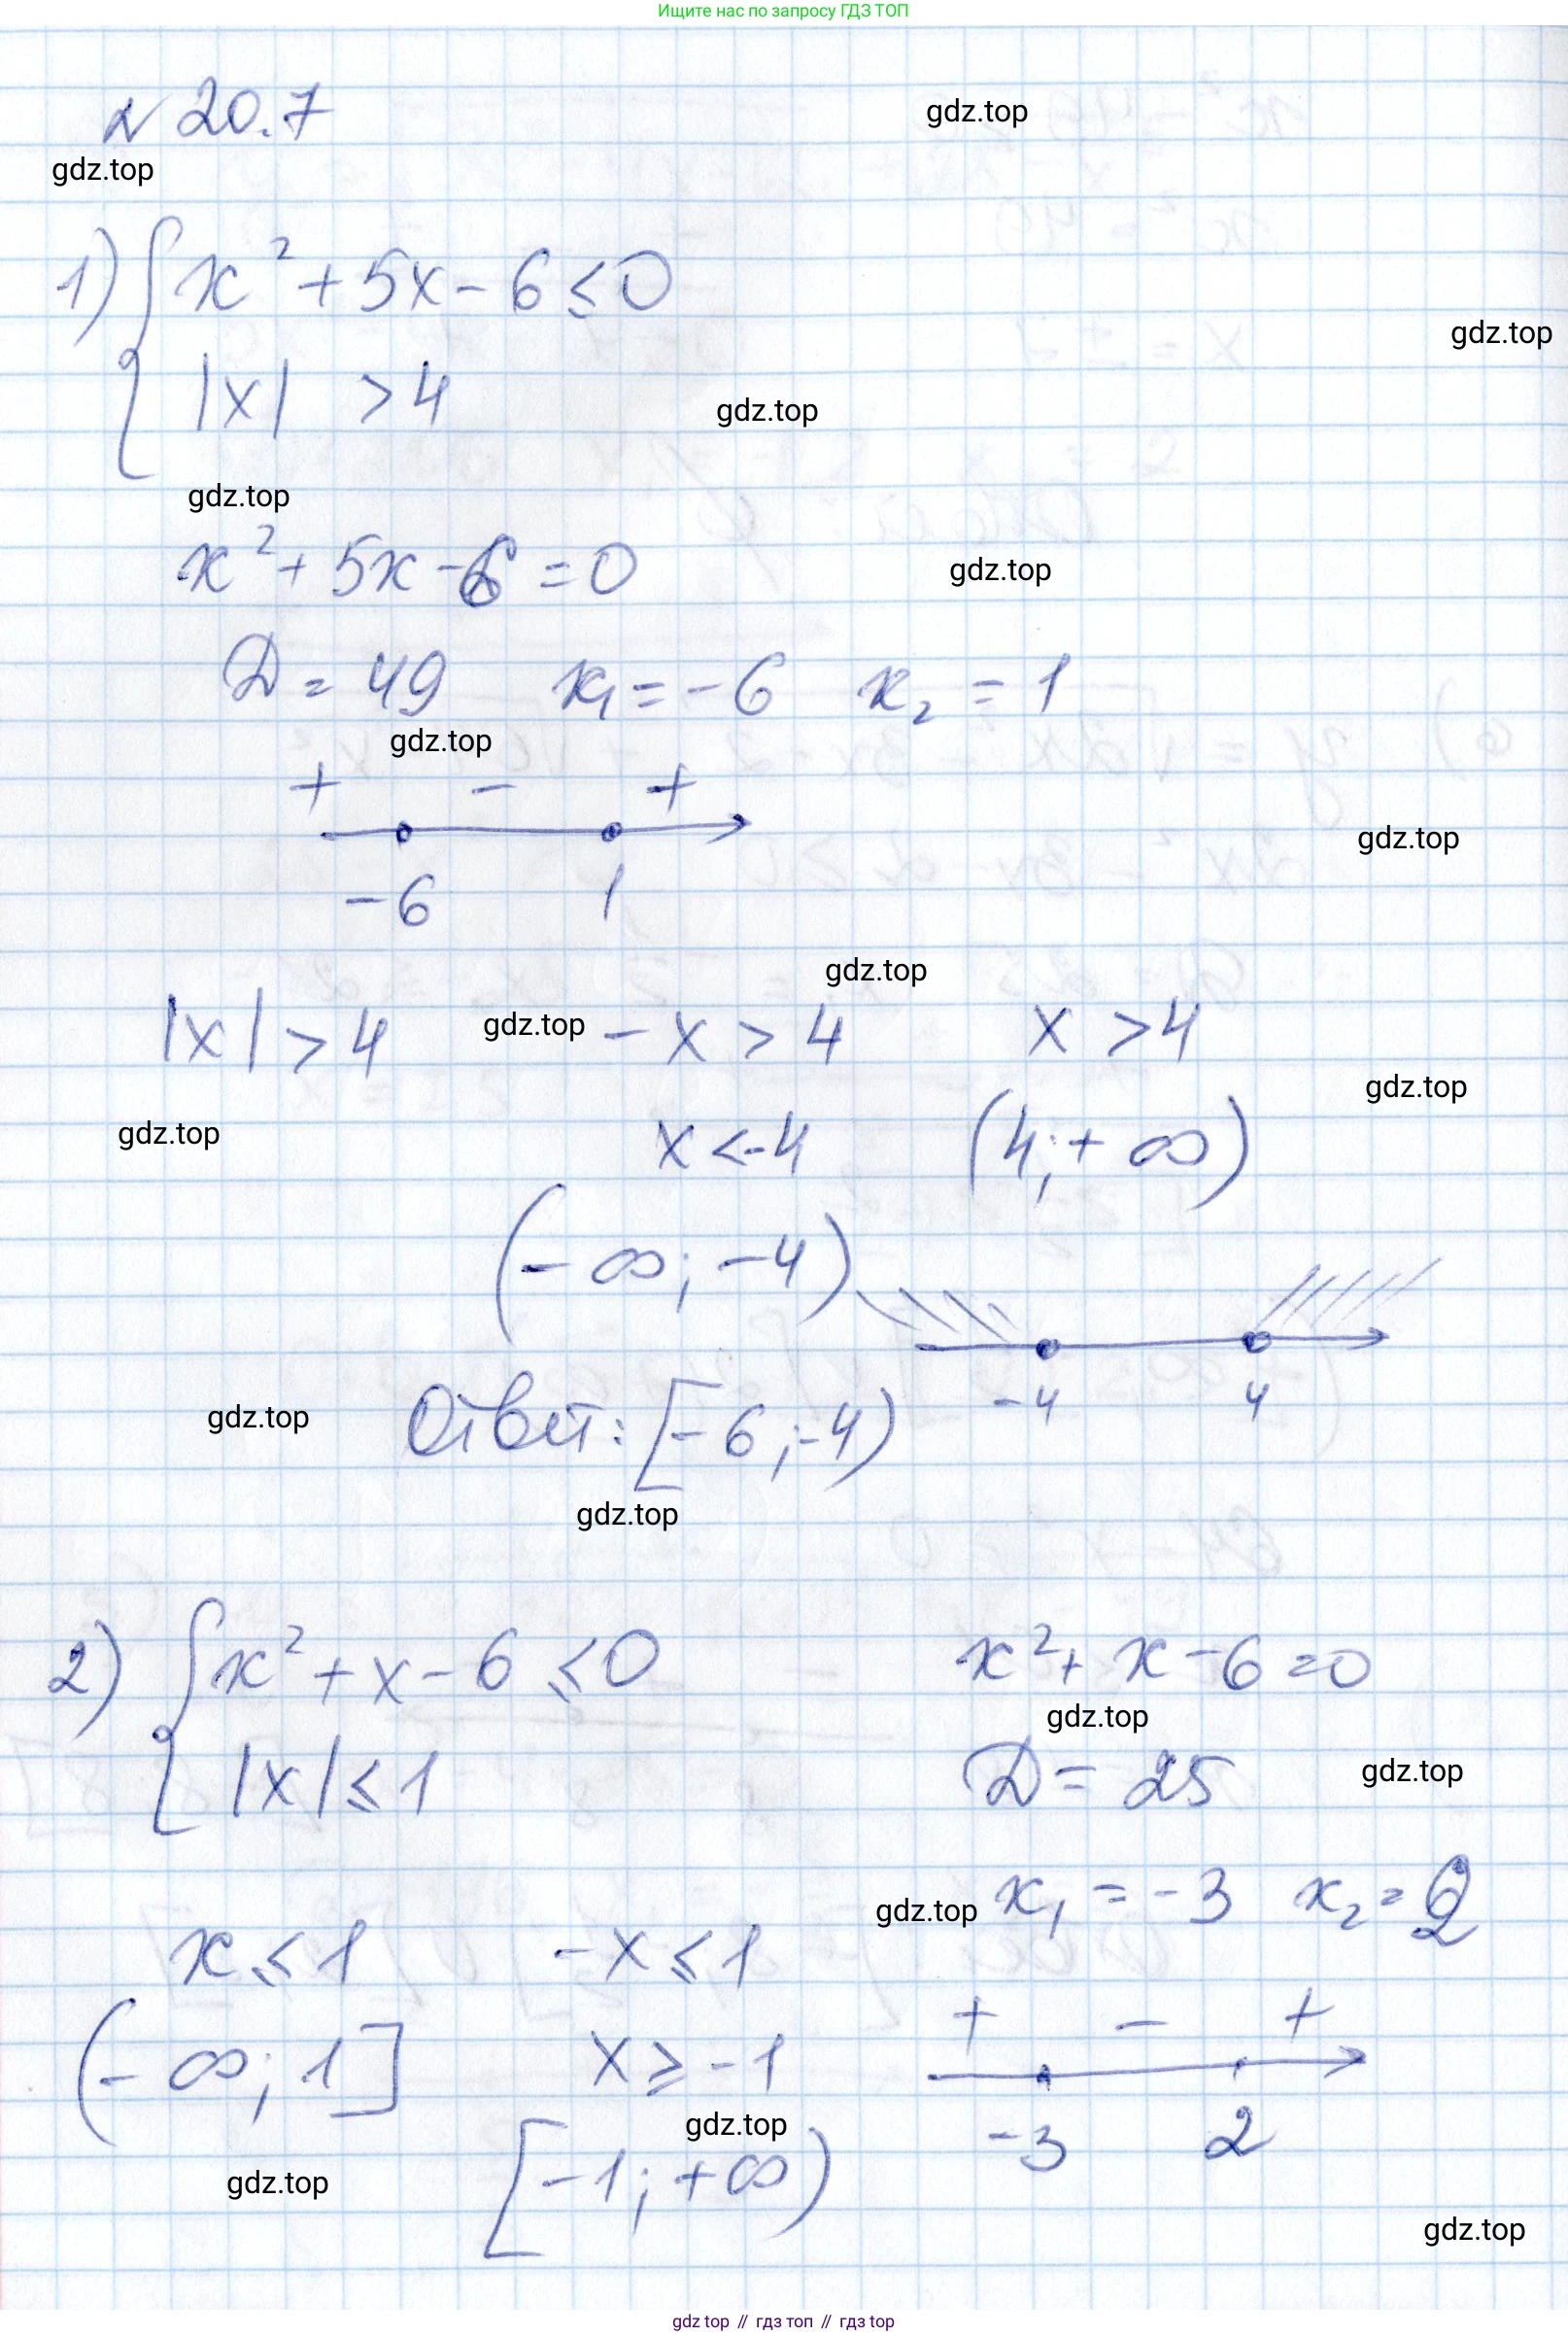 Ищите нас по запросу ГДЗ ТОП
№ 20.7
gdz.top
gdz.top
1) { x² + 5x - 6 ≤ 0
|x| > 4
gdz.top
gdz.top
gdz.top
x² + 5x - 6 = 0
gdz.top
D = 49 x₁ = -6 x₂ = 1
gdz.top
+ - +
gdz.top
-6 1
gdz.top
|x| > 4 gdz.top -x > 4 x > 4
gdz.top
gdz.top
x < -4 (4; +∞)
(-∞; -4)
-4 4
gdz.top
Ответ: [-6; -4)
gdz.top
2) { x² + x - 6 ≤ 0 x² + x - 6 = 0
gdz.top
|x| ≤ 1 D = 25
gdz.top
gdz.top
x₁ = -3 x₂ = 2
x ≤ 1 -x ≤ 1
+ - +
(-∞; 1] x ≥ -1
-3 2
gdz.top
[-1; +∞)
gdz.top
gdz.top
gdz top // гдз топ // гдз top